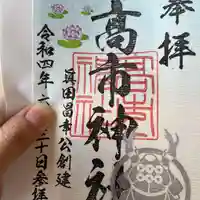 奉拝
高市神社
真田昌幸公創建
令和四年六月三十日参拝